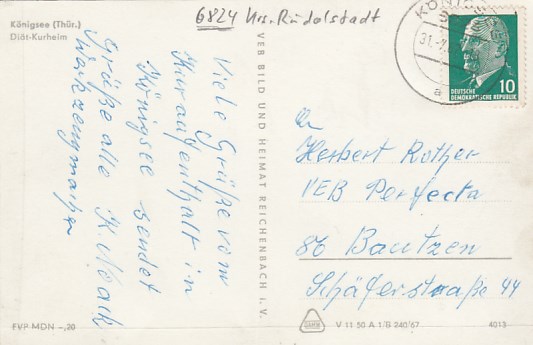 Königsee (Thür.)
Diät-Kurheim
6824 Krs. Rudolstadt
Viele Grüße vom
Kuraufenthalt in
Königsee sendet
Grüße alle
VEB BILD UND HEIMAT REICHENBACH i. V.
31.
10
DEUTSCHE
DEMOKRATISCHE REPUBLIK
An
Herbert Rother
VEB Perfecta
86 Bautzen
Schäferstraße 44
EVP MDN -,20
V 11 50 A 1/B 240/67
4013